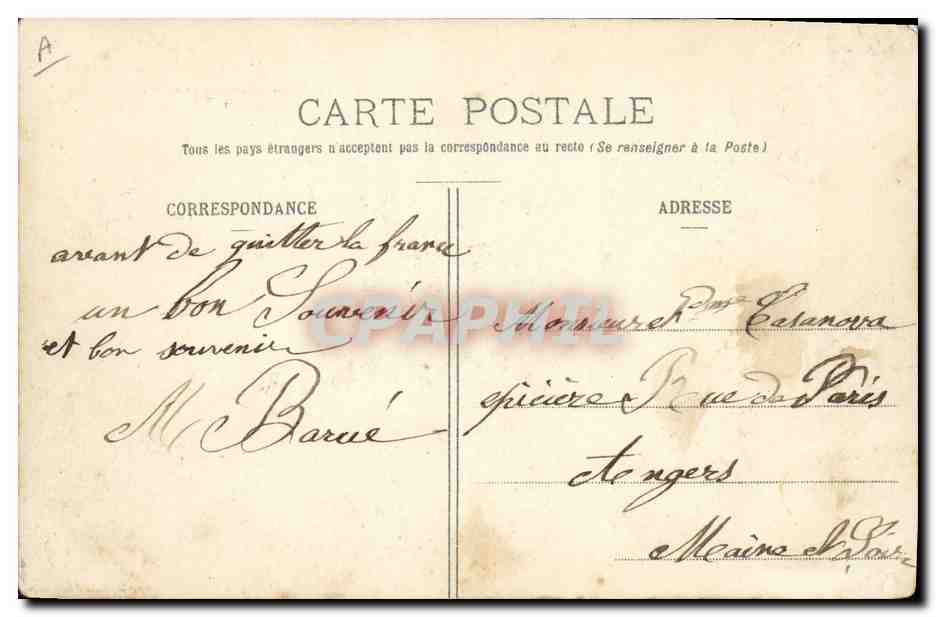 A
CARTE POSTALE
Tous les pays étrangers n'acceptent pas la correspondance au recto (Se renseigner à la Poste)
CORRESPONDANCE
avant de quitter la france
un bon Souvenir
et bon souvenir
M Barué
ADRESSE
Monsieur et Dme Casanova
épicière Rue de Paris
Angers
Maine et Loire
CPAPHIL